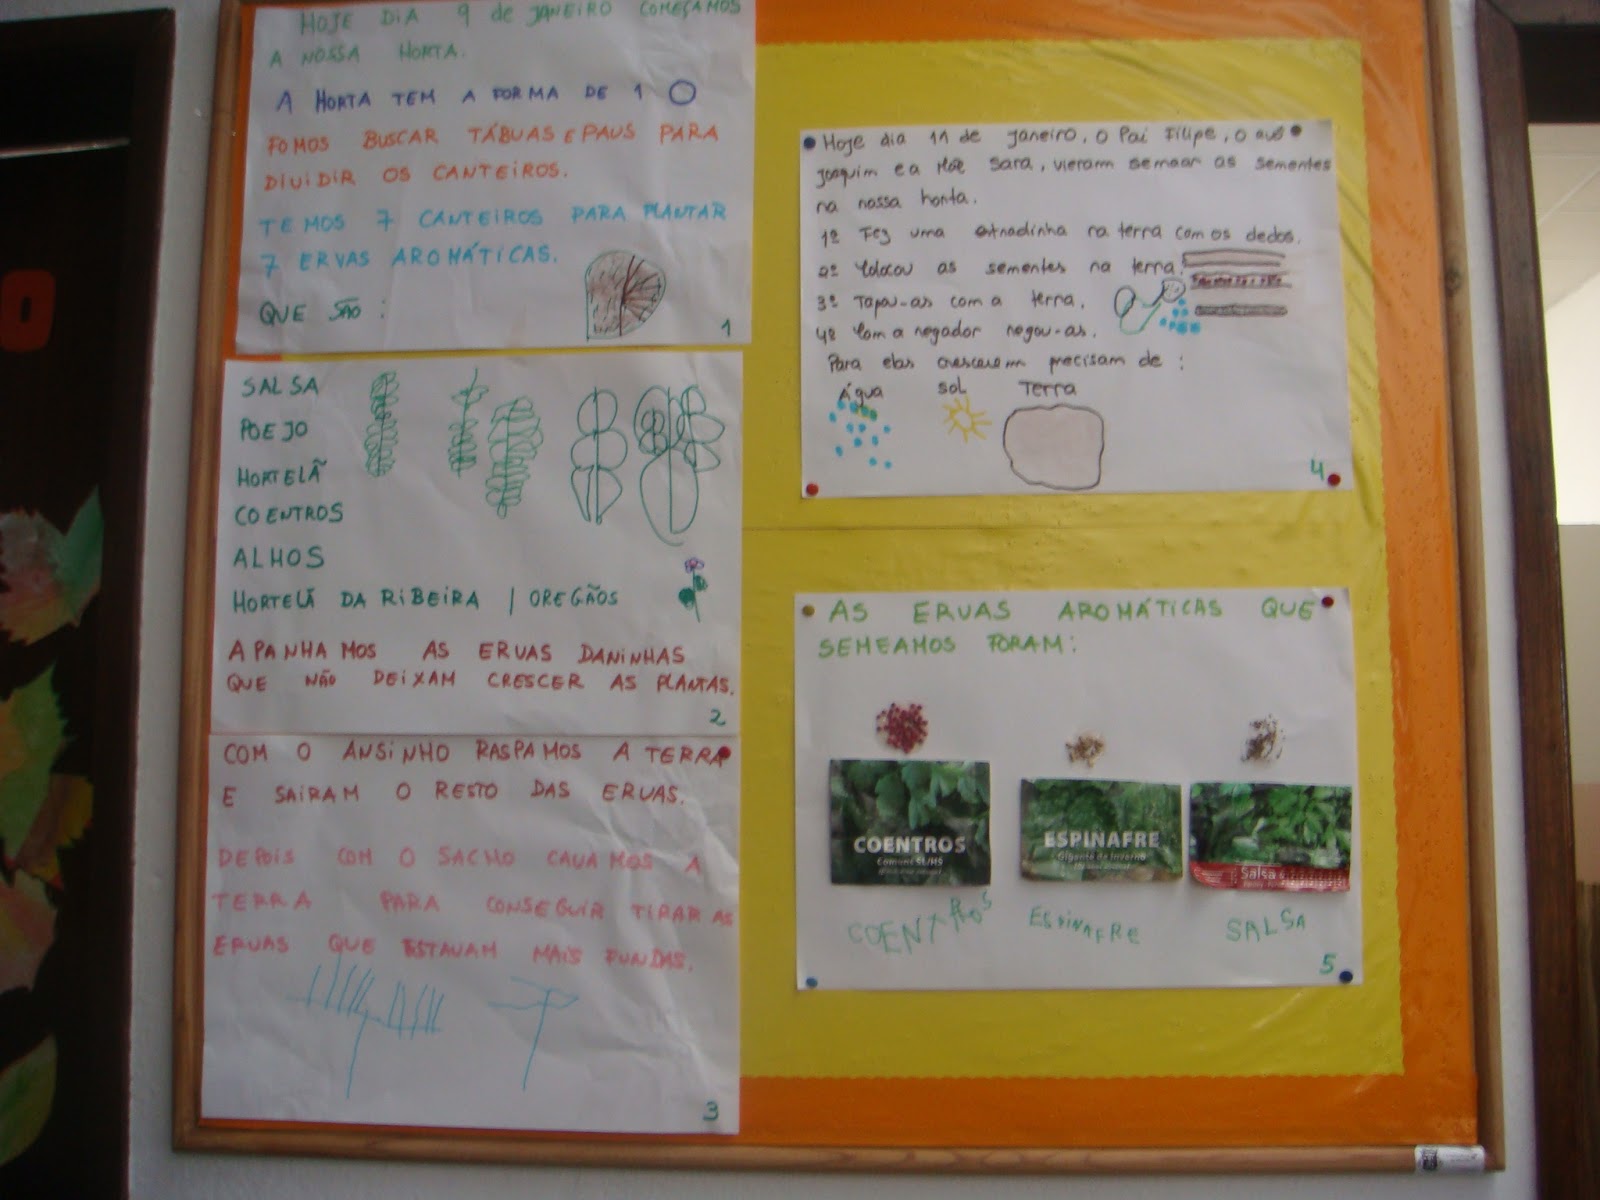 HOJE DIA 9 de JANEIRO COMEÇAMOS
A NOSSA HORTA.
A HORTA TEM A FORMA DE 1 O
FOMOS BUSCAR TÁBUAS E PAUS PARA
DIVIDIR OS CANTEIROS.
TEMOS 7 CANTEIROS PARA PLANTAR
7 ERVAS AROMÁTICAS.
QUE SÃO :
1
SALSA
POEJO
HORTELÃ
COENTROS
ALHOS
HORTELÃ DA RIBEIRA / OREGÃOS
APANHAMOS AS ERVAS DANINHAS
QUE NÃO DEIXAM CRESCER AS PLANTAS.
2
COM O ANSINHO RASPAMOS A TERRA
E SAIRAM O RESTO DAS ERVAS.
DEPOIS COM O SACHO CAVAMOS A
TERRA PARA CONSEGUIR TIRAR AS
ERVAS QUE ESTAVAM MAIS FUNDAS.
3
Hoje dia 11 de janeiro, o Pai Filipe, o avô
Joaquim e a Mãe Sara, vieram semear as sementes
na nossa horta.
1º Fez uma estradinha na terra com os dedos.
2º Colocou as sementes na terra.
3º Tapou-as com a terra.
4º Com a regador regou-as.
Para elas crescerem precisam de :
Água sol Terra
4
AS ERVAS AROMÁTICAS QUE
SEMEAMOS FORAM:
COENTROS
ESPINAFRE
Gigante de Inverno
Salsa
COENTROS ESPINAFRE SALSA
5